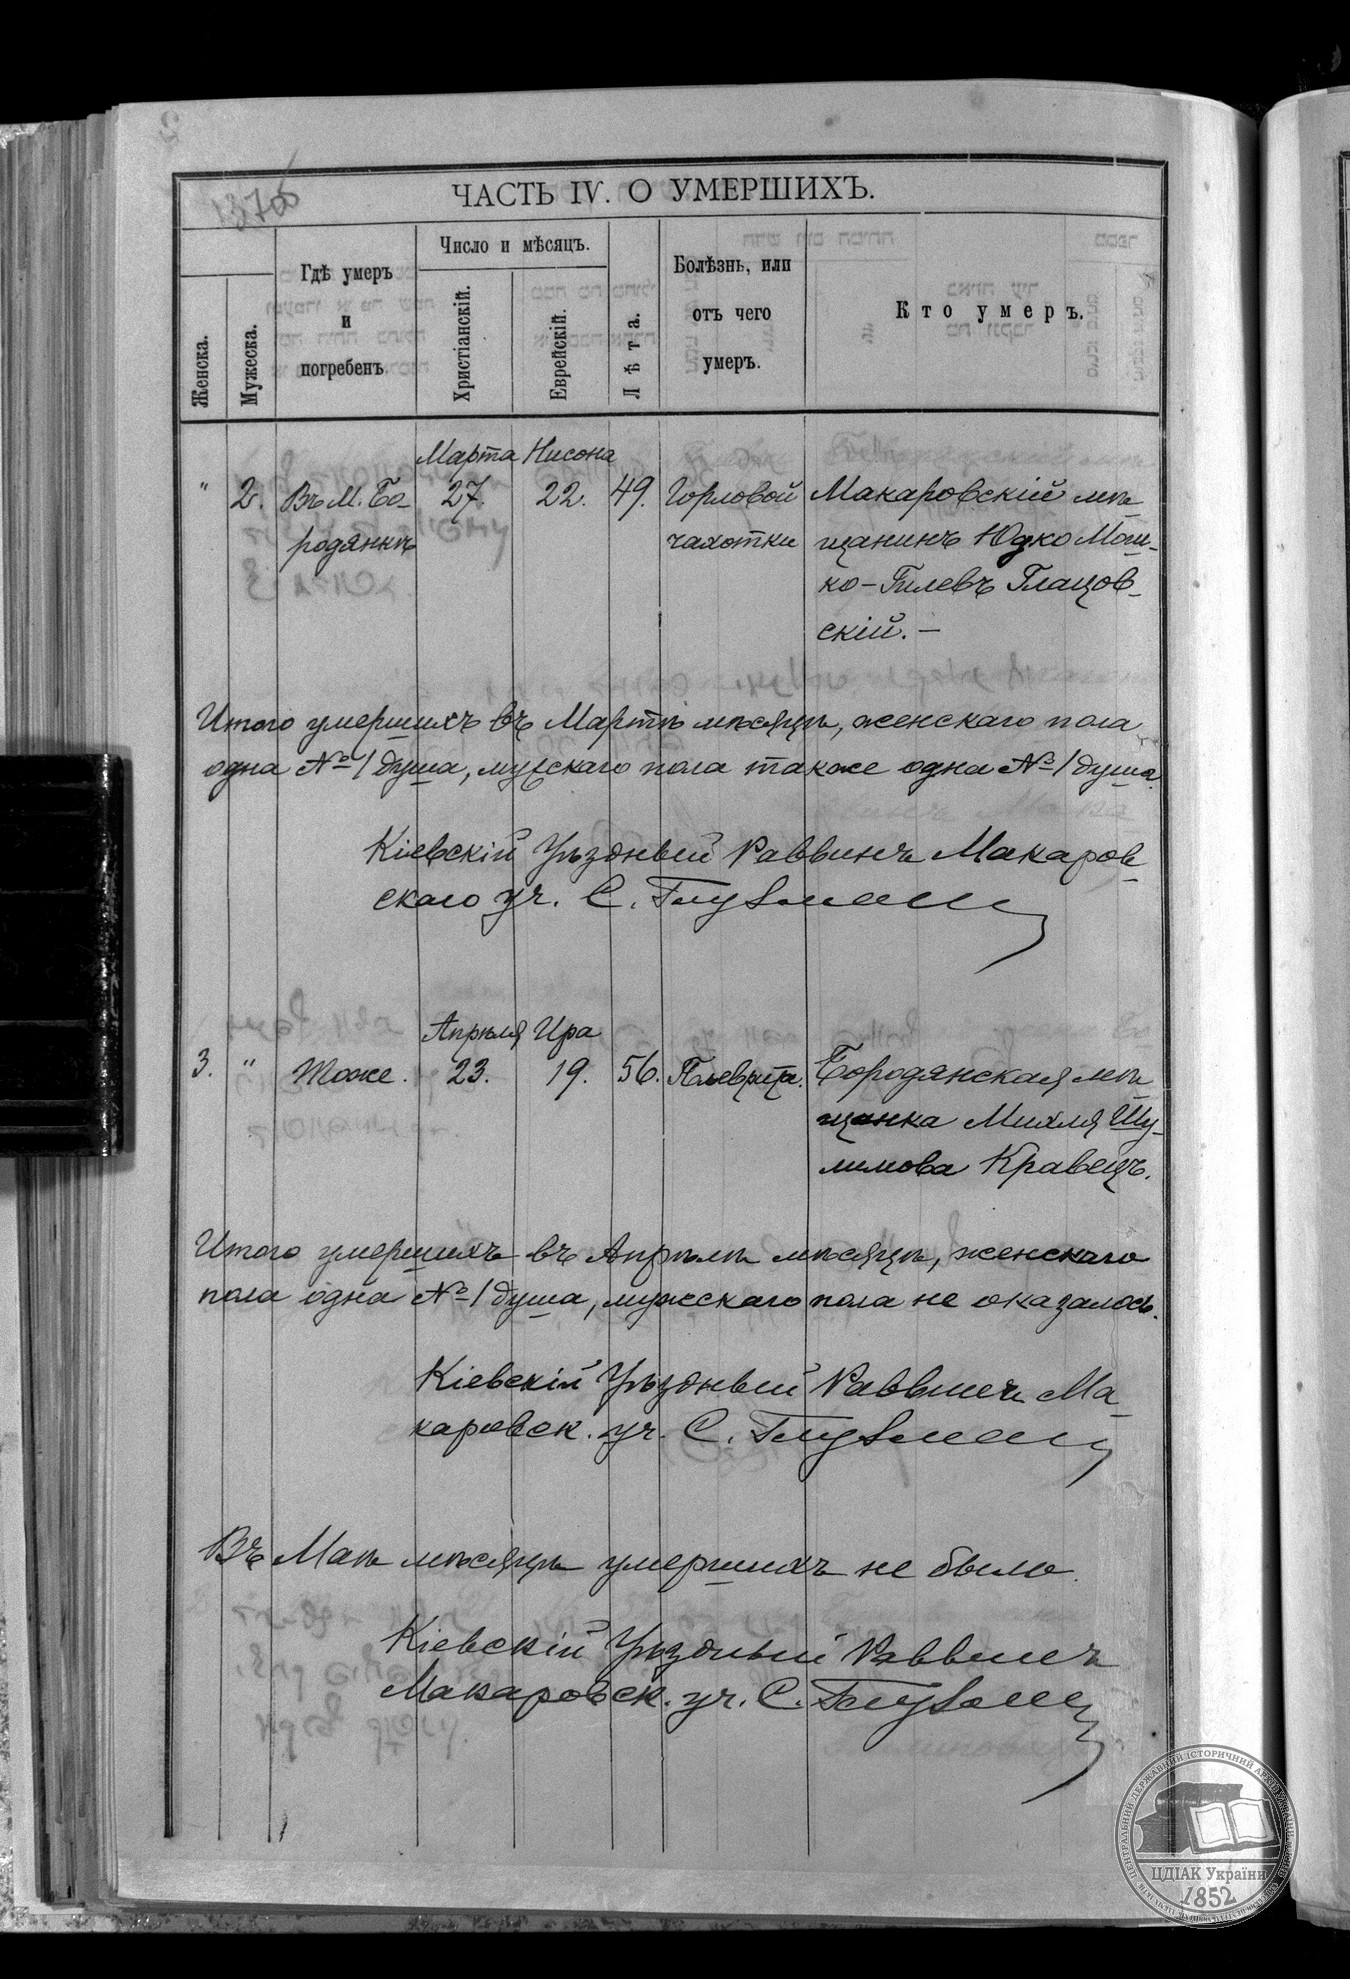 ЧАСТЬ IV. О УМЕРШИХЪ.
Женска.
Мужеска.
Гдѣ умеръ
и
погребенъ
Число и мѣсяцъ.
Христіанскій.
Еврейскій.
Лѣта.
Болѣзнь, или
отъ чего
умеръ.
Кто умеръ.
Марта Нисона
" 2. Въ М. Бо- 27. 22. 49. Горловой Макаровскій мѣ
родянкѣ чахотки щанинъ Юдко Мош-
ко-Гилевъ Глацов-
скій.-
Итого умершихъ въ Мартѣ мѣсяцѣ, женскаго пола
одна № 1 душа, мужскаго пола также одна № 1 душа.
Кіевскій Уѣздный Раввинъ Макаров-
скаго уч. С. Глузман
Апрѣля Ира
3. " Тоже. 23. 19. 56. Плеврита. Бородянская мѣ
щанка Михля Шу-
лимова Кравецъ.
Итого умершихъ въ Апрѣлѣ мѣсяцѣ, женскаго
пола одна № 1 душа, мужскаго пола не оказалось.
Кіевскій Уѣздный Раввинъ Ма-
каровск. уч. С. Глузман
Въ Маѣ мѣсяцѣ умершихъ не было.
Кіевскій Уѣздный Раввинъ
Макаровск. уч. С. Глузман
ЦДІАК України
1852